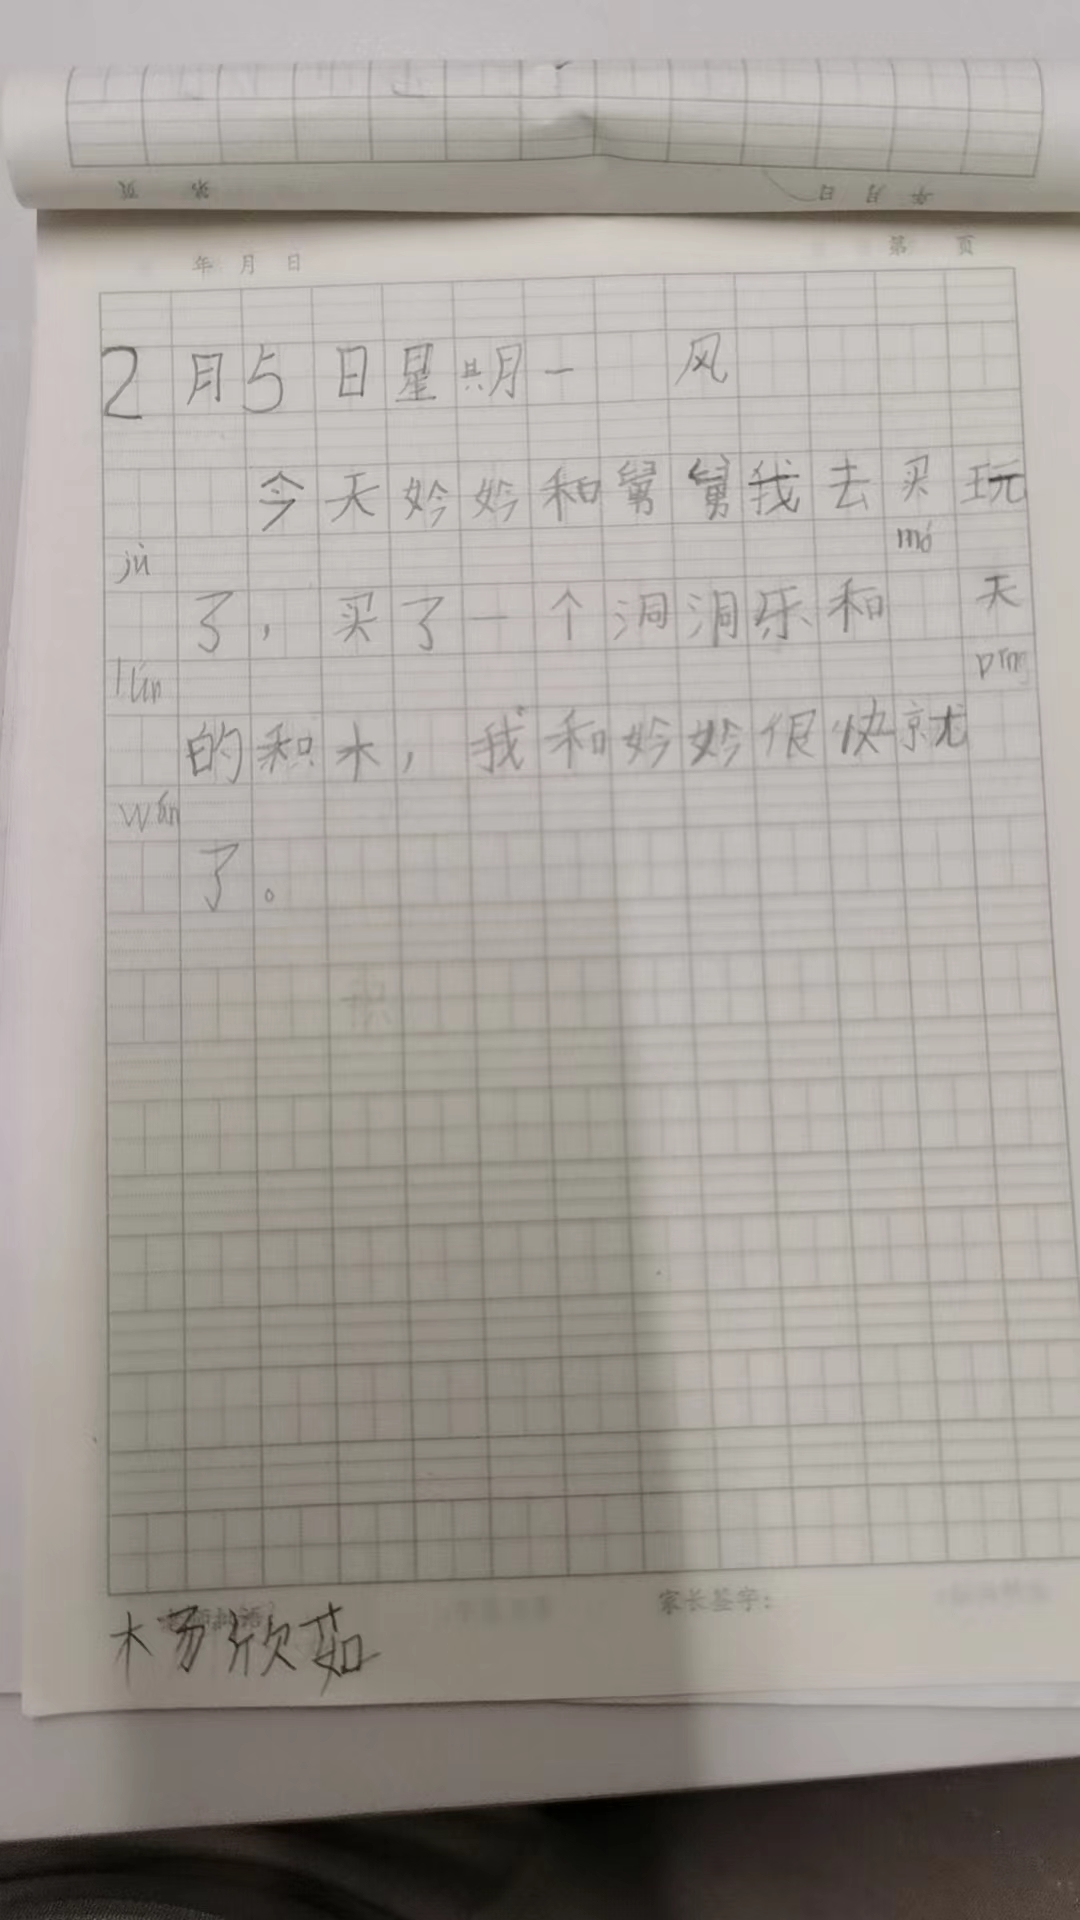 第 页
年 月 日
年 月 日 第 页
2月5日星期一 风
今天妗妗和舅舅我去买玩
jù mó
了，买了一个洞洞乐和 天
lún pīng
的积木，我和妗妗很快就
wán
了。
杨欣茹
家长签字：